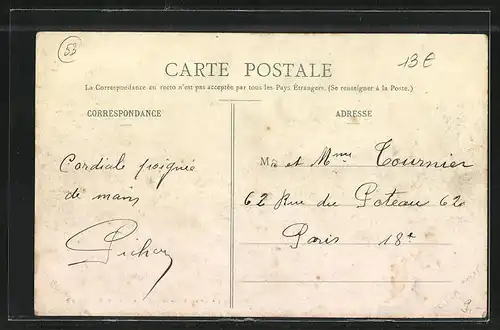 53
13€
CARTE POSTALE
La Correspondance au recto n'est pas acceptée par tous les Pays Étrangers. (Se renseigner à la Poste.)
CORRESPONDANCE
ADRESSE
Cordiale poignée
de mains
Pichon
M. et Mme Tournier
62 Rue du Poteau 62
Paris 18e